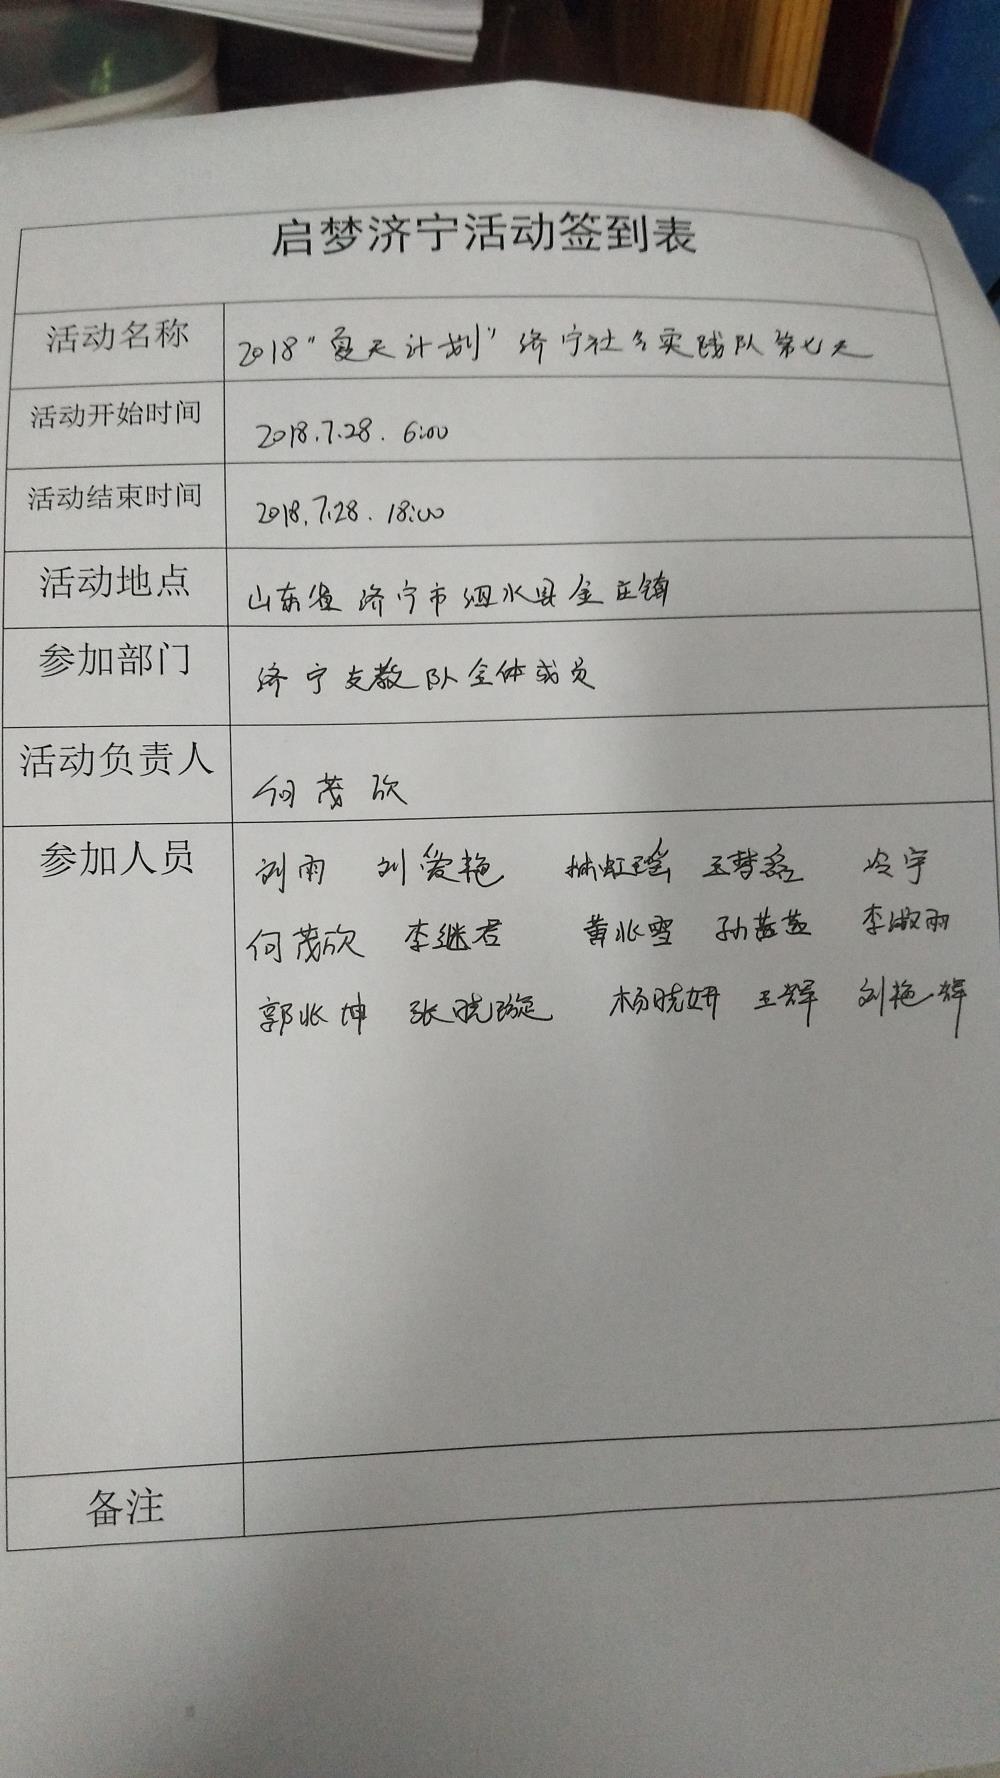 启梦济宁活动签到表
活动名称 2018"夏天计划"济宁社会实践队第七天
活动开始时间 2018.7.28. 6:00
活动结束时间 2018.7.28. 18:00
活动地点 山东省济宁市泗水县金庄镇
参加部门 济宁支教队全体成员
活动负责人 何茂欣
参加人员 刘雨 刘爱艳 林虹瑶 王梦磊 冷宇
何茂欣 李继君 黄兆雪 李淑雨
郭兆坤 张晓璇 杨晓妍 王辉 刘艳辉
备注